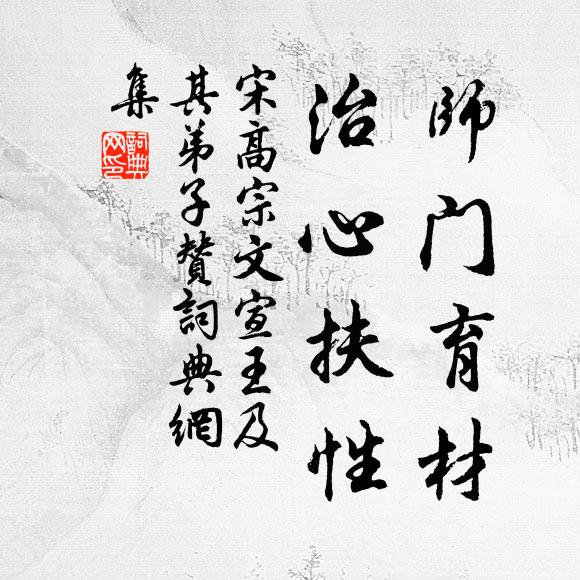 師门育材
治心扶性
宋高宗文宣王及
其弟子贊詞典網
集
詞典
网印